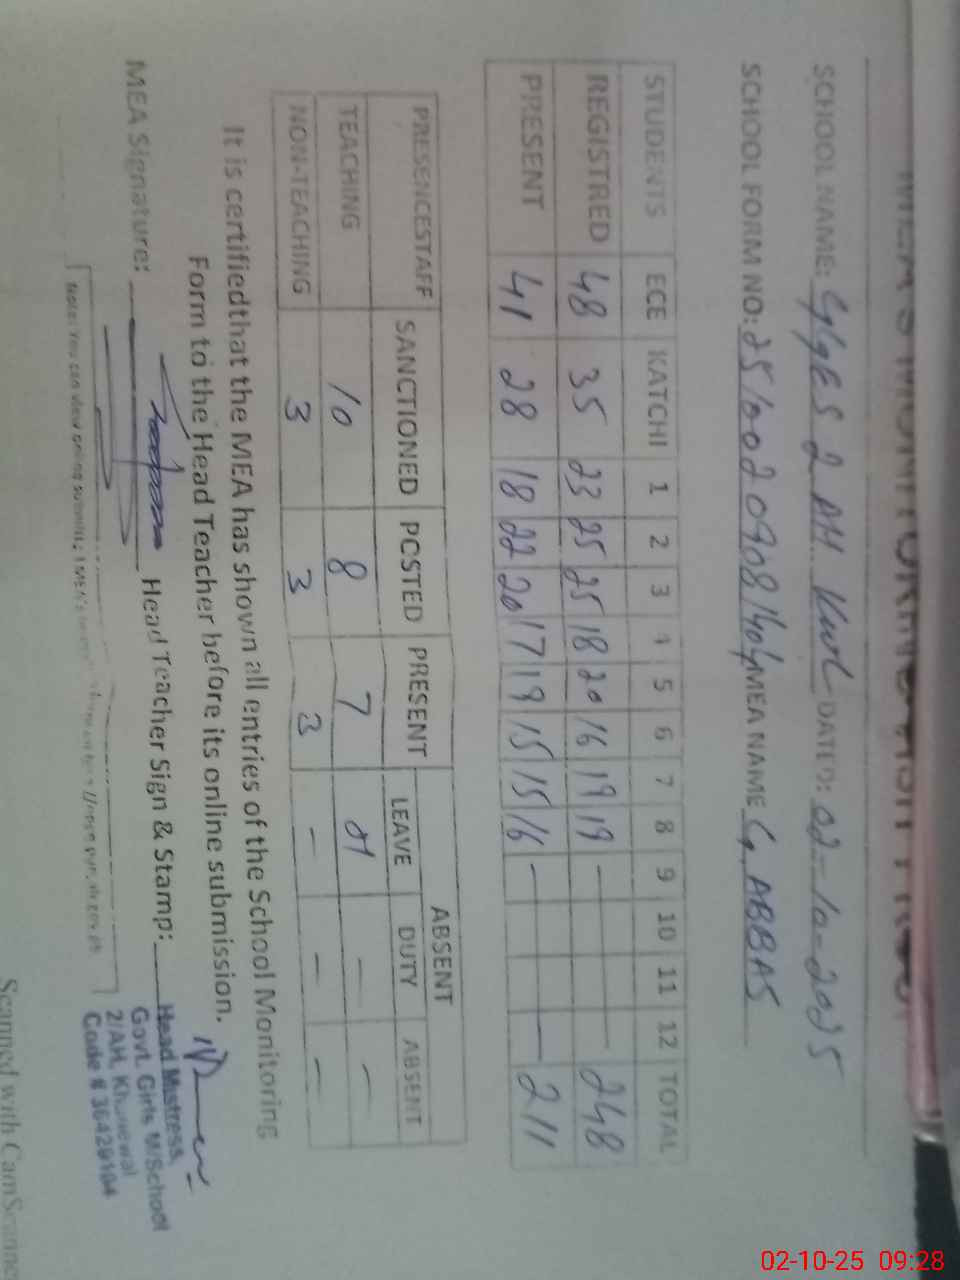 SCHOOL NAME: GGES 2 AH KWL DATED: 02-10-2025
SCHOOL FORM NO: MEA NAME G. ABBAS
STUDENTS ECE KATCHI 1 2 3 4 5 6 7 8 9 10 11 12 TOTAL
REGISTRED 48 35 23 25 25 18 20 16 19 19 — — 248
PRESENT 41 28 18 22 20 17 19 15 15 16 — — 211
PRESENCESTAFF SANCTIONED POSTED PRESENT ABSENT
LEAVE DUTY ABSENT
TEACHING 10 8 7 01 — —
NON-TEACHING 3 3 3 — — —
It is certifiedthat the MEA has shown all entries of the School Monitoring
Form to the Head Teacher before its online submission.
MEA Signature: Head Teacher Sign & Stamp:
Head Mistress,
Govt. Girls M/School
2/AH, Khanewal
Code #
Note: You can view online
Scanned with CamScanner
02-10-25 09:28